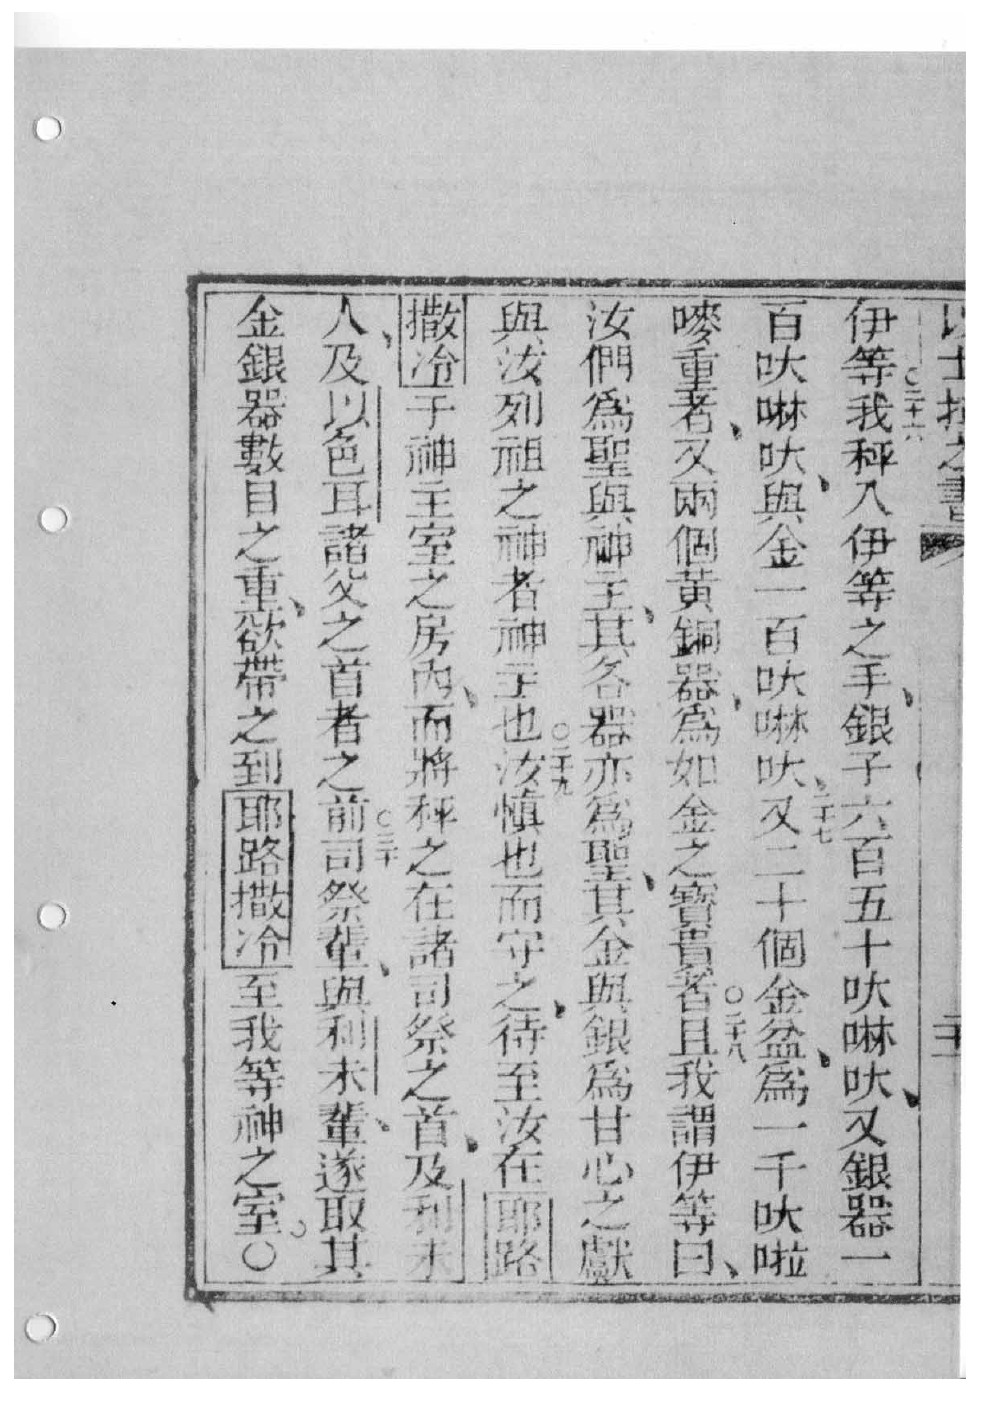 以士拉之書
二十
伊等○二十六我秤入伊等之手、銀子六百五十吠啉吠、又銀器一
百吠啉吠、與金一百吠啉吠、二十七又二十個金盆、爲一千吠啦
嘜重者、又兩個黃銅器、爲如金之寶貴者○二十八且我謂伊等曰、
汝們爲聖與神主、其各器亦爲聖、其金與銀爲甘心之獻
與汝列祖之神者神主也○二十九汝慎也而守之、待至汝在耶路
撒冷于神主室之房內、而將秤之在諸司祭之首、及利未
人、及以色耳諸父之首者之前○三十司祭輩、與利未輩、遂取其
金銀器數目之重、欲帶之到耶路撒冷至我等神之室。○